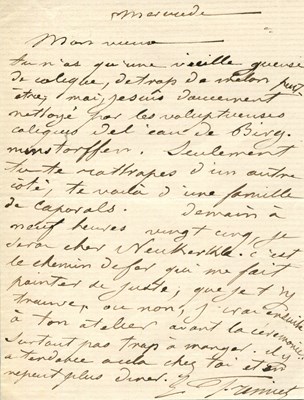 Mercredi
Mon vieux
tu n'as qu'une vieille gueuse
de colique, de trop de melon peut
être, mais je suis doucement
nettoyé par les voluptueuses
coliques de l'eau de Birg.
minstorffen. Seulement
tu te rattrapes d'un autre
coté, te voilà d'une famille
de caporals. Demain à
neuf heures vingt cinq, je
serai chez c'est
le chemin de fer qui me fait
pointer de juste, que je t'y
trouve, ou non, j'irai ensuite
à ton atelier avant la cérémonie
Surtout pas trop à manger, il y
a tendable chez toi et on
repeut plus diner.